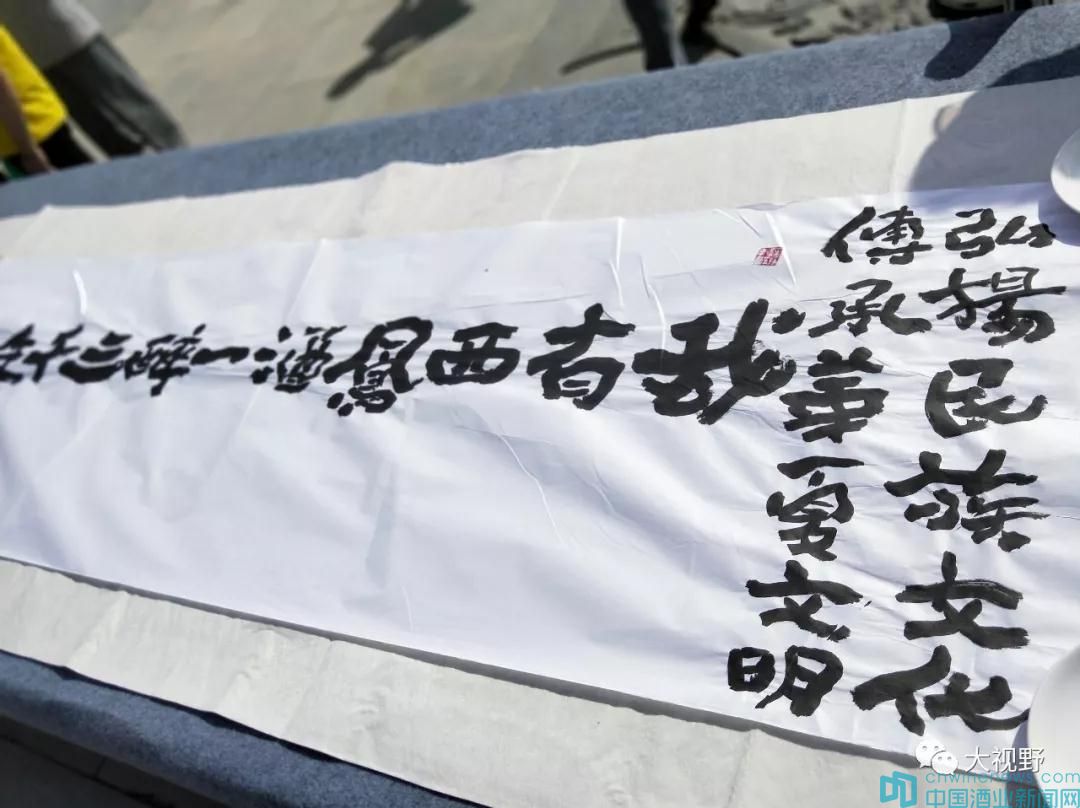 弘揚民族文化
傳承華夏文明
我有西鳳酒一醉三千年
大视野
cnwinenews.com
中国酒业新闻网